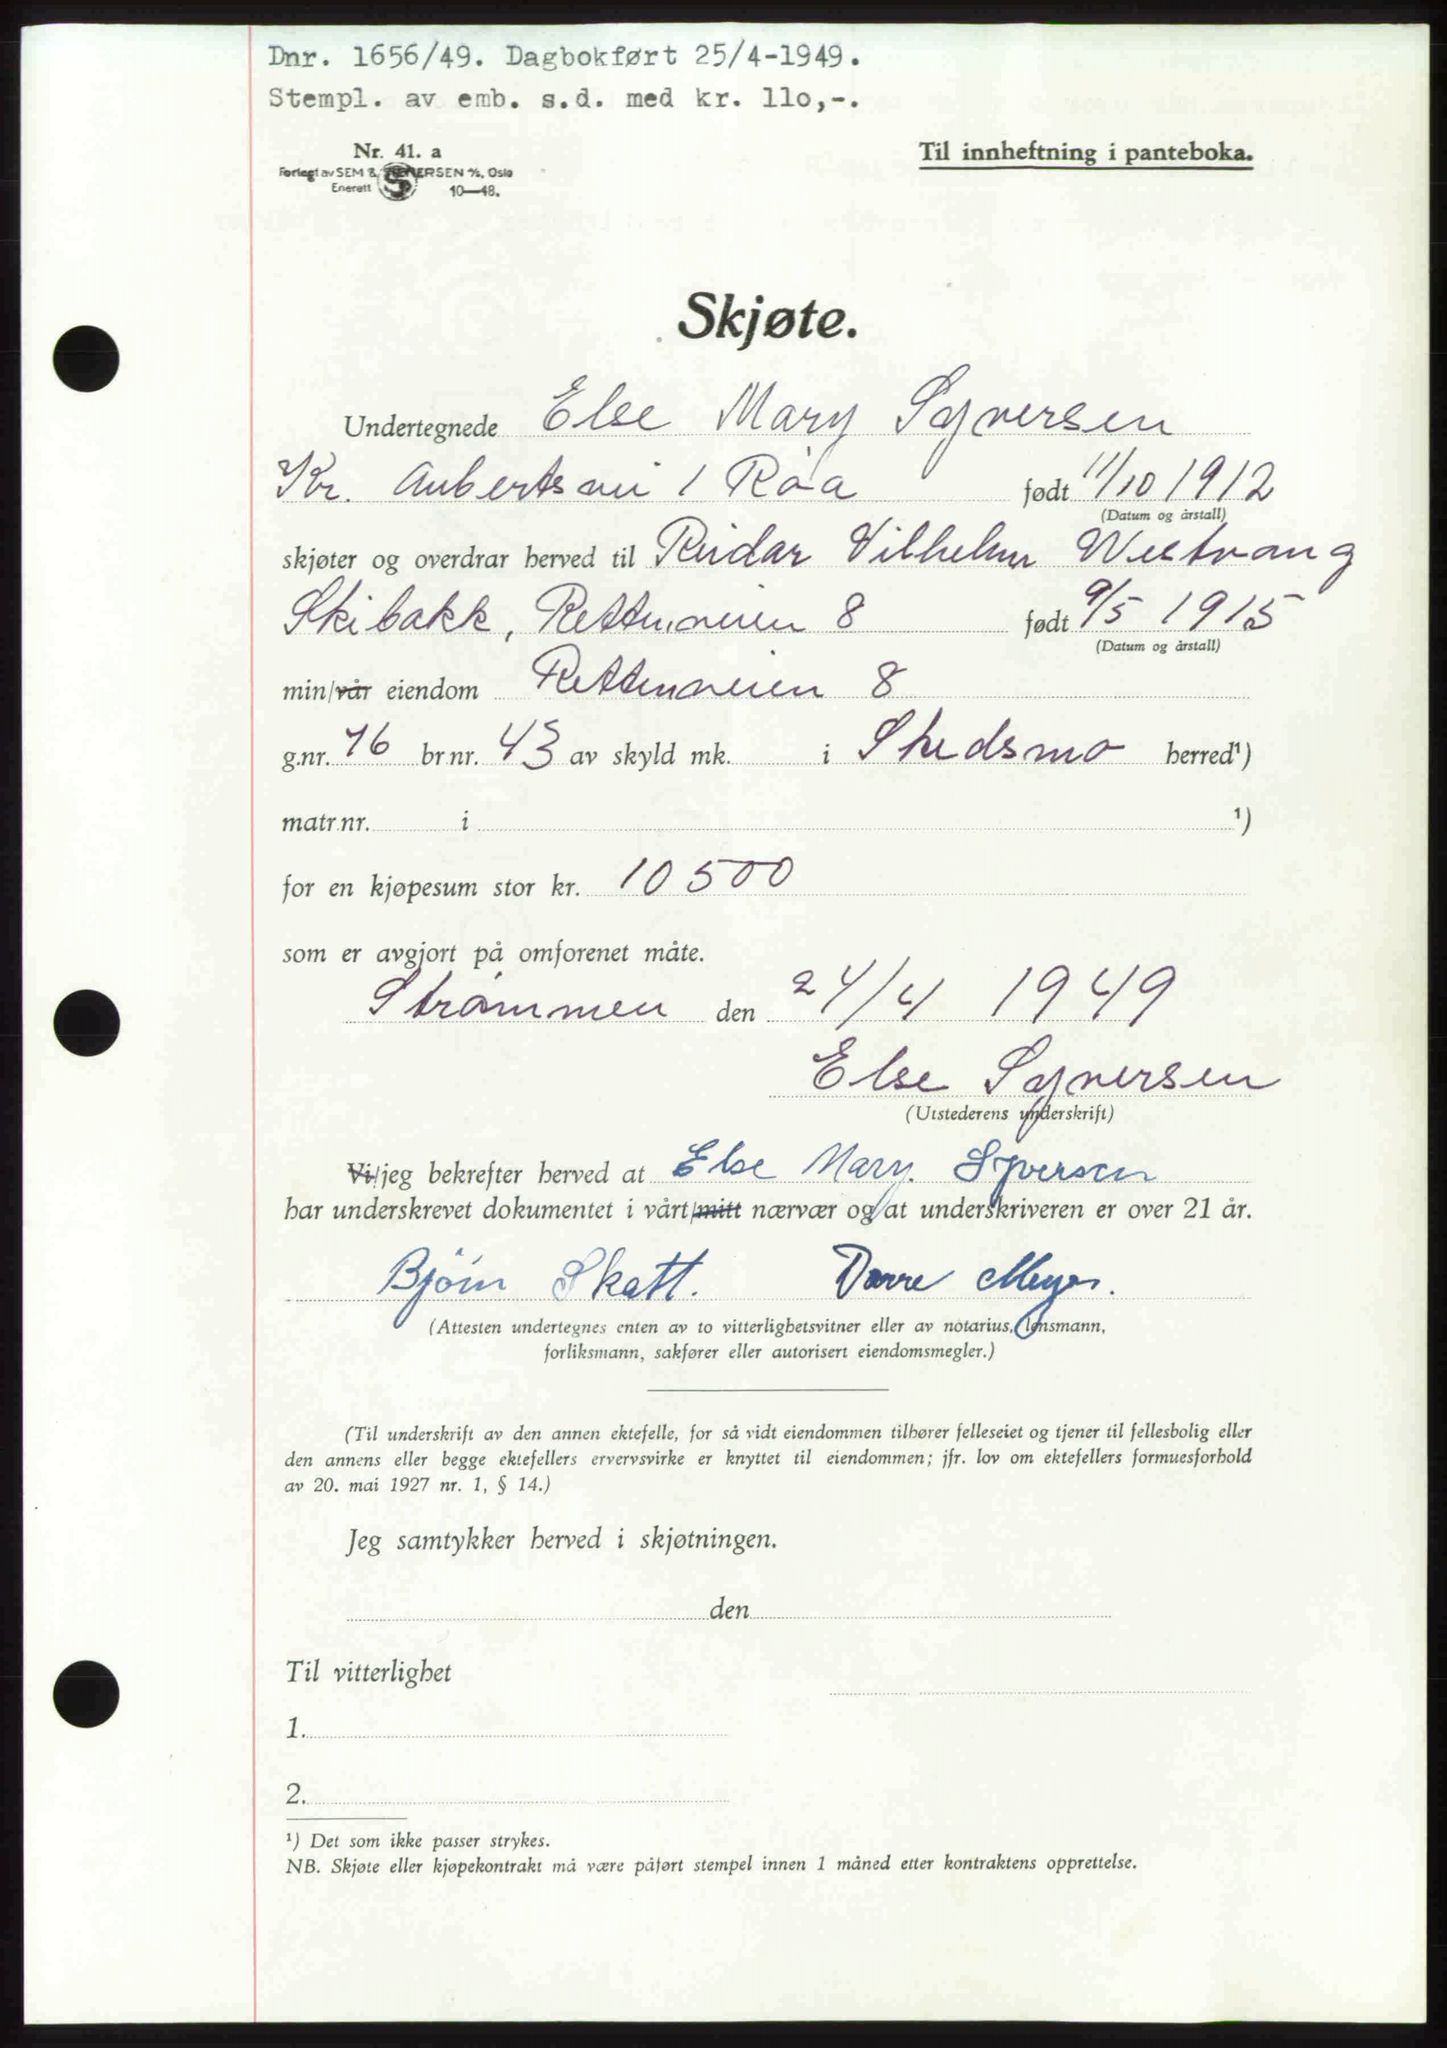 Dnr. 1656/49. Dagbokført 25/4-1949.
Stempl. av emb. s.d. med kr. 110,-.
Nr. 41. a
Til innheftning i panteboka.
Forlagt av SEM & STENERSEN A/S, Oslo
Enerett 10—48.
Skjøte.
Undertegnede Else Mary Syversen
Kr. Aubertsvei 1 Røa født 11/10 1912
(Datum og årstall)
skjøter og overdrar herved til Reidar Vilhelm Westvang
Skibakk, Rettenveien 8 født 9/5 1915
(Datum og årstall)
min/vår eiendom Rettenveien 8
g.nr. 76 br.nr. 43 av skyld mk. i Skedsmo herred¹)
matr.nr. i ¹)
for en kjøpesum stor kr. 10500
som er avgjort på omforenet måte.
Strømmen den 24/4 1949
Else Syversen
(Utstederens underskrift)
Vi/jeg bekrefter herved at Else Mary Syversen
har underskrevet dokumentet i vårt/mitt nærvær og at underskriveren er over 21 år.
Bjørn Skatt. Meyer.
(Attesten undertegnes enten av to vitterlighetsvitner eller av notarius, lensmann,
forliksmann, sakfører eller autorisert eiendomsmegler.)
(Til underskrift av den annen ektefelle, for så vidt eiendommen tilhører felleseiet og tjener til fellesbolig eller
den annens eller begge ektefellers ervervsvirke er knyttet til eiendommen; jfr. lov om ektefellers formuesforhold
av 20. mai 1927 nr. 1, § 14.)
Jeg samtykker herved i skjøtningen.
den
Til vitterlighet
1.
2.
¹) Det som ikke passer strykes.
NB. Skjøte eller kjøpekontrakt må være påført stempel innen 1 måned etter kontraktens opprettelse.